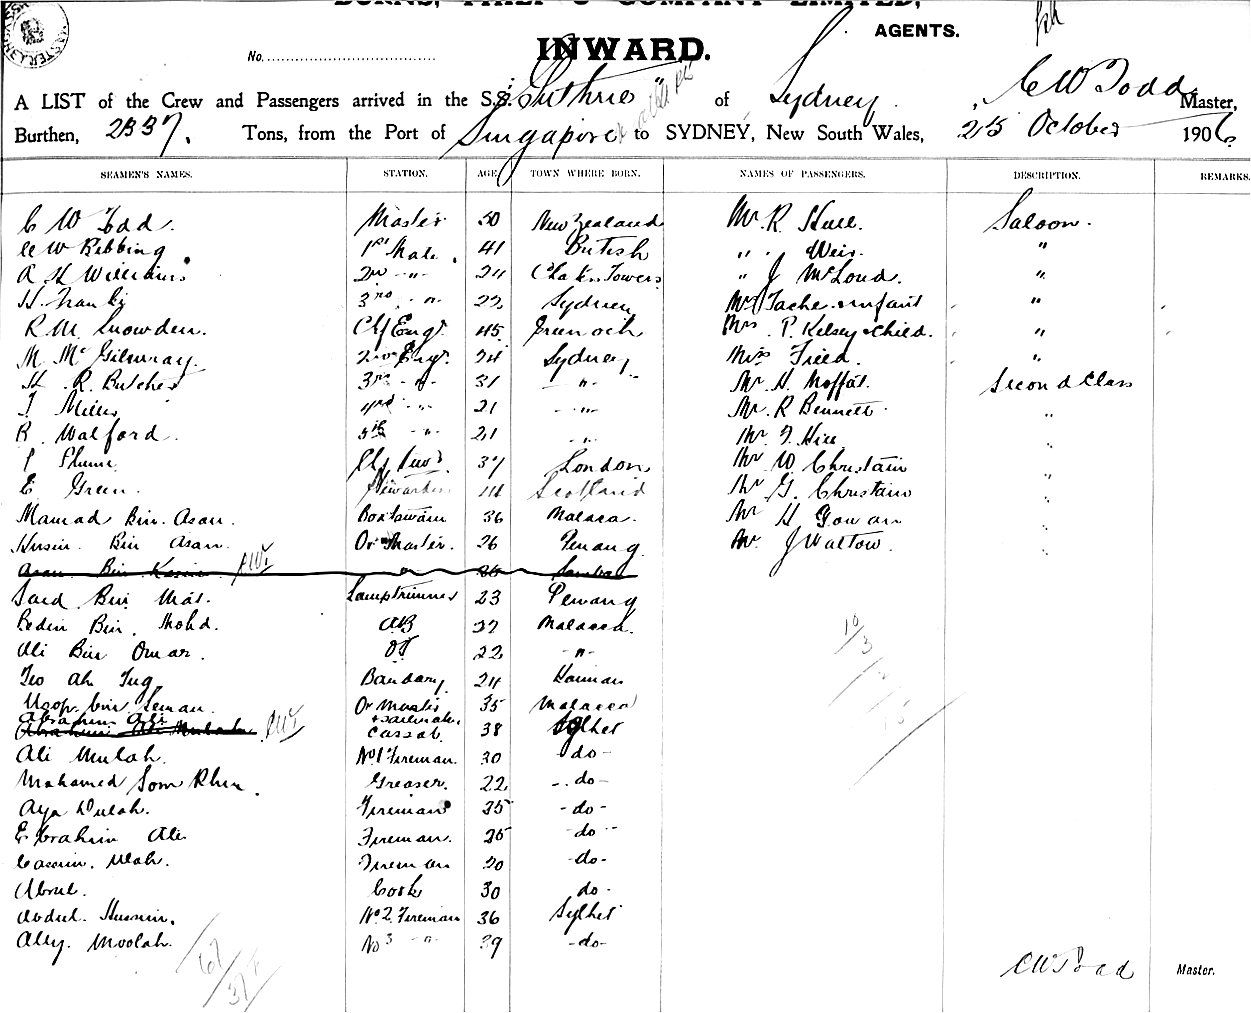 BURNS, PHILP & COMPANY LIMITED,
AGENTS.
No.
INWARD.
A LIST of the Crew and Passengers arrived in the S.S. "Guthrie" of Sydney, C W Todd Master,
Burthen, 2337. Tons, from the Port of Singapore to SYDNEY, New South Wales, 25 October 1906
SEAMEN'S NAMES. STATION. AGE TOWN WHERE BORN. NAMES OF PASSENGERS. DESCRIPTION. REMARKS.
C W Todd. Master 50 New Zealand Mr R. Hull Saloon.
W Ribbing 1st Mate. 41 British " " Weir. "
A H Williams 2nd -"- 24 " J McLoud. "
H. 3rd -"- 22 Sydney infant "
R. M. Snowden. Chf Engr. 45 Greenock Mrs. P. Kelsey & Child. "
M Mc Gilvray. 2nd Engr. 24 Sydney Miss Fried. "
H. R. Butcher 3rd -"- 31 -"- Mr. H. Moffat. Second Class
J Mills -"- 21 -"- Mr. R Bennett. "
R. Walford. 5th -"- 21 -"- Mr "
37 London Mr W Christain "
E Green. Scotland Mr G. Christain "
Mamad Bin. Asan. 36 Malacca. Mr H Gowan "
Husin. Bin Asan. Qr Master. 26 Penang. Mr. J Walton. "
Asan Bin
Said Bin Mat. Lamptrimmer 23 Penang
Bedin Bin. Mohd. AB 27 Malacca.
Ali Bin Omar. 22 -"-
Teo Ah 24 Hainan
Usop bin Leman. Qr Master 35 Malacca
Abrahim Ali Cassab. 38 Sylhet
Ali Mulah. No 1 Fireman. 30 -do-
Mohamed Som Greaser. 22 -do-
Fireman 35 -do-
Ebrahim Ali Fireman. -do-
Cassim. Ulah. Fireman -do-
Abrul. Cook 30 do-
Abdul. Hussein. No. 2 Fireman 36 Sylhet
Ally. Moolah. No 3 -"- 39 -do-
C W Todd Master.